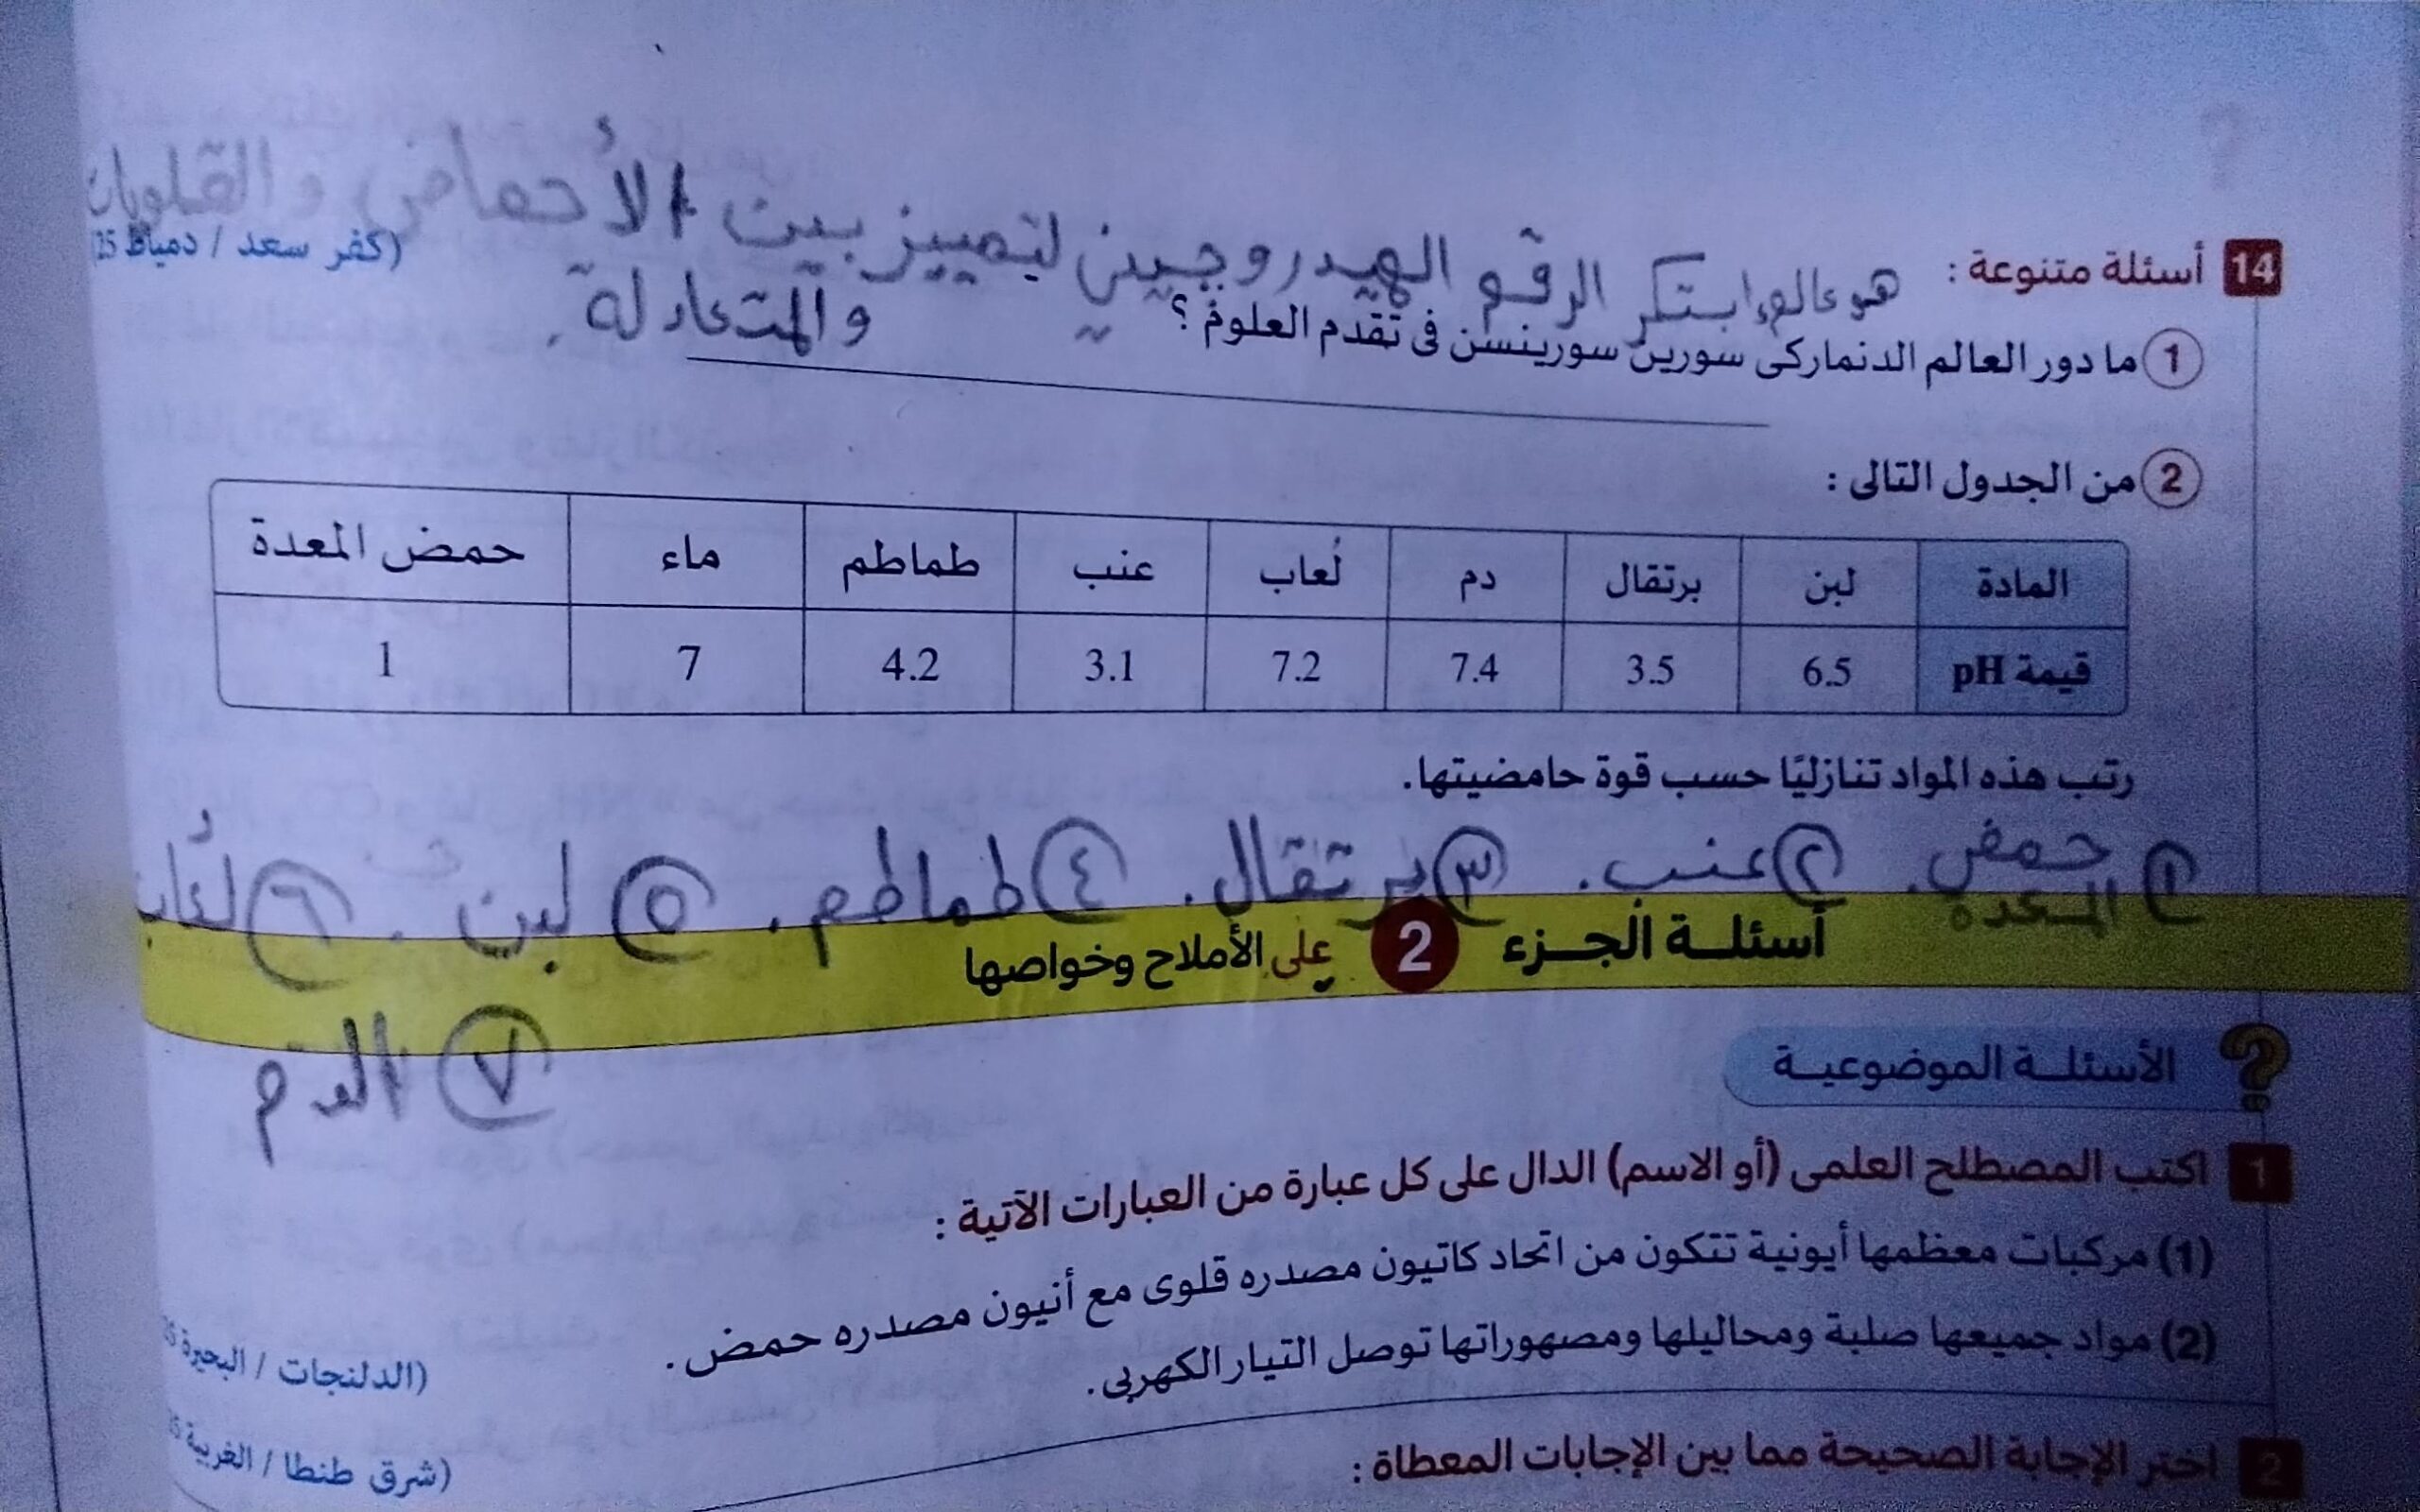 هو عالم ابتكر الرقم الهيدروجيني لتمييز بين الأحماض والقلويات
والمتعادلة.
14 أسئلة متنوعة :
(كفر سعد / دمياط 25)
1 ما دور العالم الدنماركى سورين سورينسن فى تقدم العلوم ؟
2 من الجدول التالى :
المادة لبن برتقال دم لُعاب عنب طماطم ماء حمض المعدة
قيمة pH 6.5 3.5 7.4 7.2 3.1 4.2 7 1
رتب هذه المواد تنازليًا حسب قوة حامضيتها.
١ حمض المعدة. ٢ عنب. ٣ برتقال. ٤ طماطم. ٥ لبن. ٦ لُعاب
٧ الدم
أسئلة الجزء 2 على الأملاح وخواصها
الأسئلة الموضوعية
1 اكتب المصطلح العلمى (أو الاسم) الدال على كل عبارة من العبارات الآتية :
(1) مركبات معظمها أيونية تتكون من اتحاد كاتيون مصدره قلوى مع أنيون مصدره حمض.
(الدلنجات / البحيرة
(2) مواد جميعها صلبة ومحاليلها ومصهوراتها توصل التيار الكهربى.
(شرق طنطا / الغربية
2 اختر الإجابة الصحيحة مما بين الإجابات المعطاة :